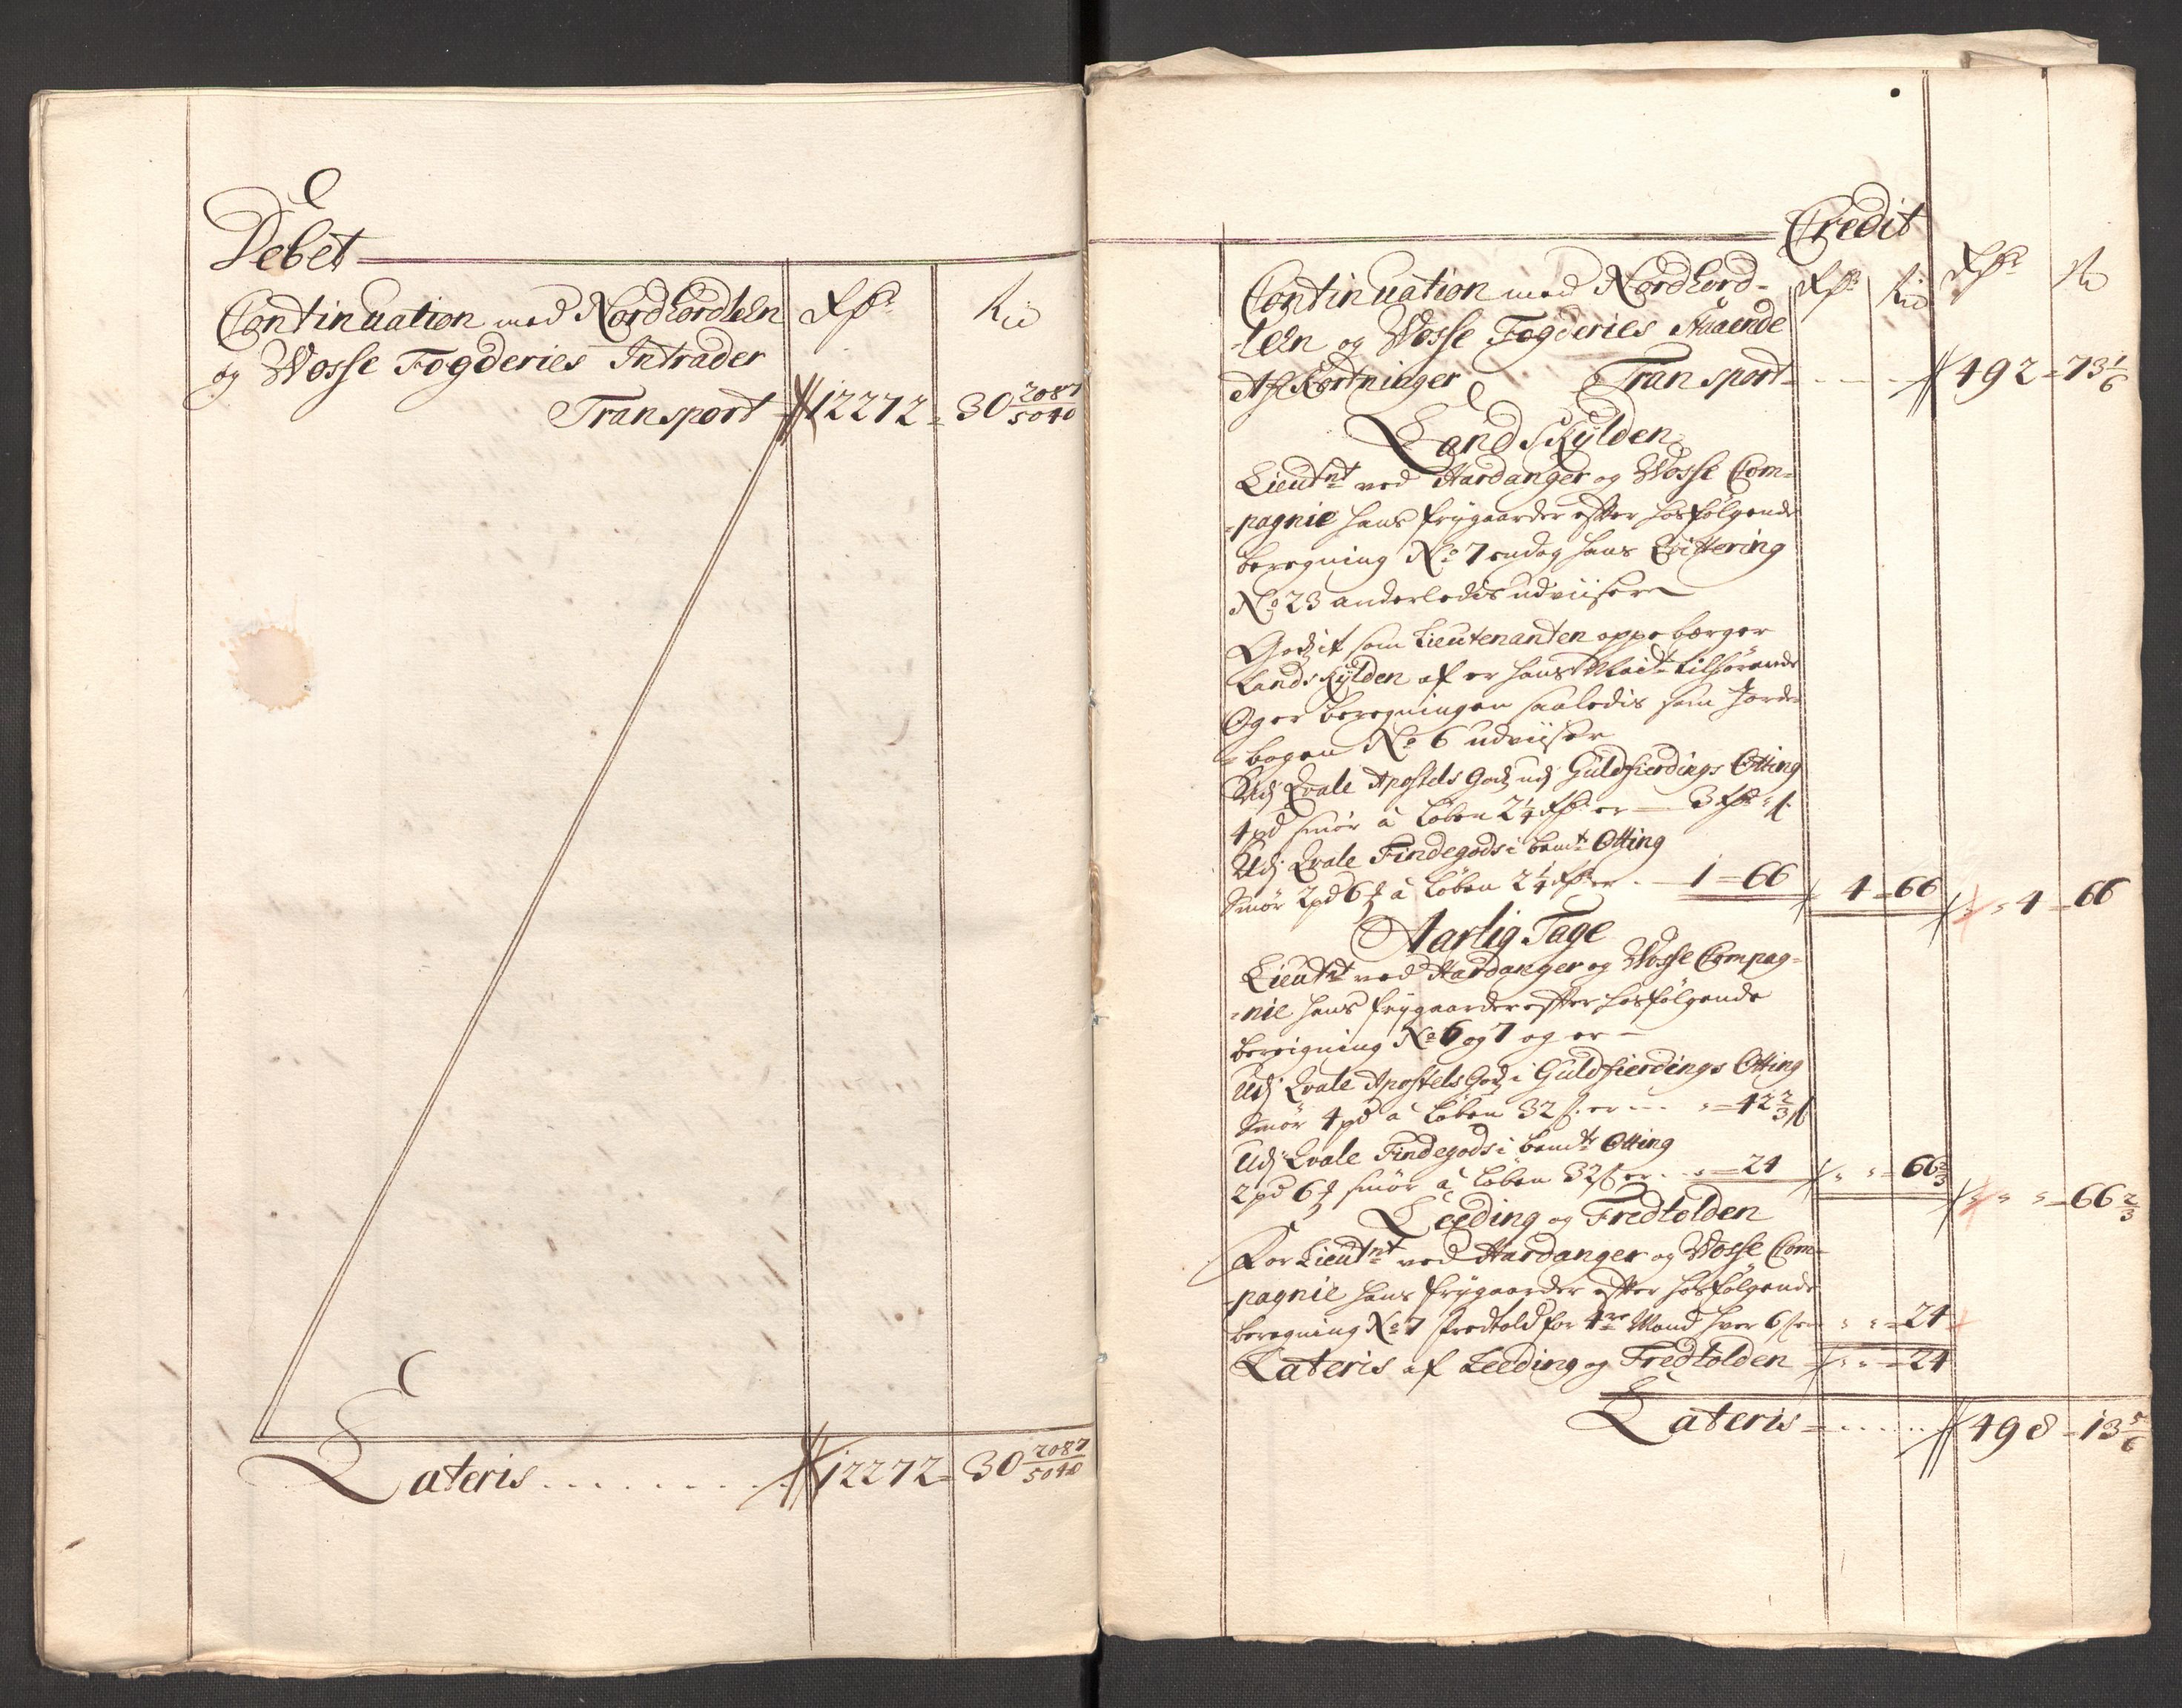 Debet
Continuation med Nordhordlehn Rdr ß
og Wosse Fogderies Intrader
Transport 12272 = 30 2087/5040
Lateris . . . . . . . . 12272 = 30 2087/5040
Credit
Continuation med Nordhord- Rdr ß Rdr ß
-lehn og Wosse Fogderies Staaende
Afkortninger Transport = . . . 492 = 73 1/6
Landskylden
Lieutnt ved Hardanger og Wosse Com=
=pagnie hans frjgaarder efter hosfølgende
beregning No 7 endog hans Qvittering
No 23 anderledis udviiser
Godzit som Lieutenanten oppebærger
Landskylden af er hans Mait tilhørende
Og er beregningen saaledis som Jorde-
=bogen No 6 udviiser
Udj Qvale Apostels Godz udj Guldfierdings Otting
4 pd smør à Løben 2 1/4 Rdr er — 3 Rdr " ß
Udj Qvale Findegods i bemte Otting
Smør 2 pd 6 ℔ à Løben 2 1/4 Rdr er . — 1 = 66 4 = 66 " 4 = 66
Aarlig Tage
Lieutnt ved Hardanger og Wosse Compag=
=nie hans frjgaarder efter hosfølgende
bereigning No 6 og 7 og er —
Udj Qvale Apostels Godz i Guldfierdings Otting
Smør 4 pd à Løben 32 ß er — " = 42 2/3 ß
Udj Qvale Findegods i bemte Otting
2 pd 6 ℔ smør à Løben 32 ß er . " = 24 " " = 66 2/3 " " " = 66 2/3
Leeding og Fredtolden
For Lieutnt ved Hardanger og Wosse Com=
-pagnie hans frjgaarder efter hosfølgende
beregning No 7 fredtold for 4re Mand hver 6 ß er " " = 24
Lateris af Leeding og Fredtolden " " = 24
Lateris = . . . . . . 498 = 13 5/6